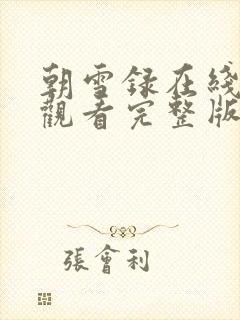 朝雪録在綫
觀看完整版
張會利